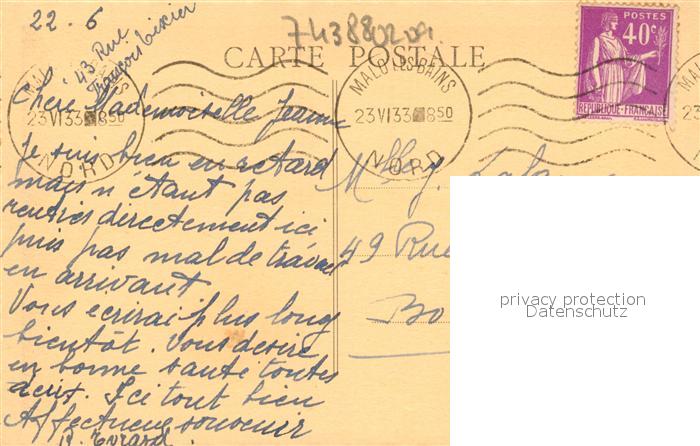 22.6
43 Rue
François Tixier
743880209
CARTE POSTALE
POSTES
40c
REPUBLIQUE-FRANÇAISE
MALO LES BAINS
23 VI 33 850
NORD
23 VI 33 850
NORD
Chère Mademoiselle Jeanne
Je suis bien en retard
mais n'étant pas
rentrés directement ici
puis pas mal de travail
en arrivant
Vous écrirai plus long
bientôt. Vous désire
en bonne santé toutes
deux. Ici tout bien
Affectueux souvenir
Evrard
Melle J.
49 Rue
Bo
privacy protection
Datenschutz